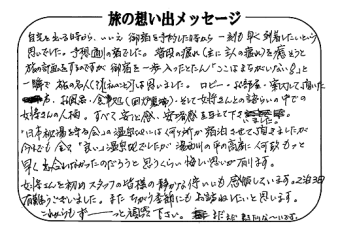 旅の想い出メッセージ
自宅を出る時から、いいえ 御宿を予約した時から 一刻も早く到着したいという
思いでした。予想通りの宿でした。普段の疲れ(主に人の疲れ)を癒そうと
旅の計画をするのですが 御宿を一歩入ったとたん「ここはまちがいない」と
一瞬で 旅の名人は思いました。ロビー、お部屋、案内して頂いた
方、お風呂・食事処(囲炉裏端)そして女将さんとの語らいの中での
女将さんの人柄。すべて安心感、安堵感を与えて下さいました。
"日本秘湯を守る会"の温泉地には何ヶ所か宿泊させて頂きましたが
今までも全て"良い"温泉地でしたが 湯西川の平の高房に何故もっと
早く出会いなかったのだろうと思うくらい 悔しい思いが有ります。
女将さんを初めスタッフの皆様の静かな佇いにも感謝しています。2泊3日
有難うございました。また ちがう季節にもお訪ねしたいと思います。
これからもずーーっと頑張って下さい。